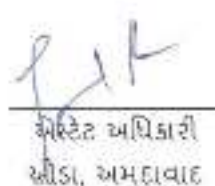 એસ્ટેટ અધિકારી
ઔડા, અમદાવાદ